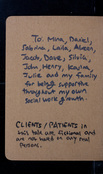 To: Mira, Daniel,
Sabrina, Laila, Aileen,
Jacob, Dave, Silvia,
John, Henry,
Julie and my family
for being supportive
throughout my own
social work growth.
CLIENTS / PATIENTS in
this talk are fictional and
are not based on any real
persons.